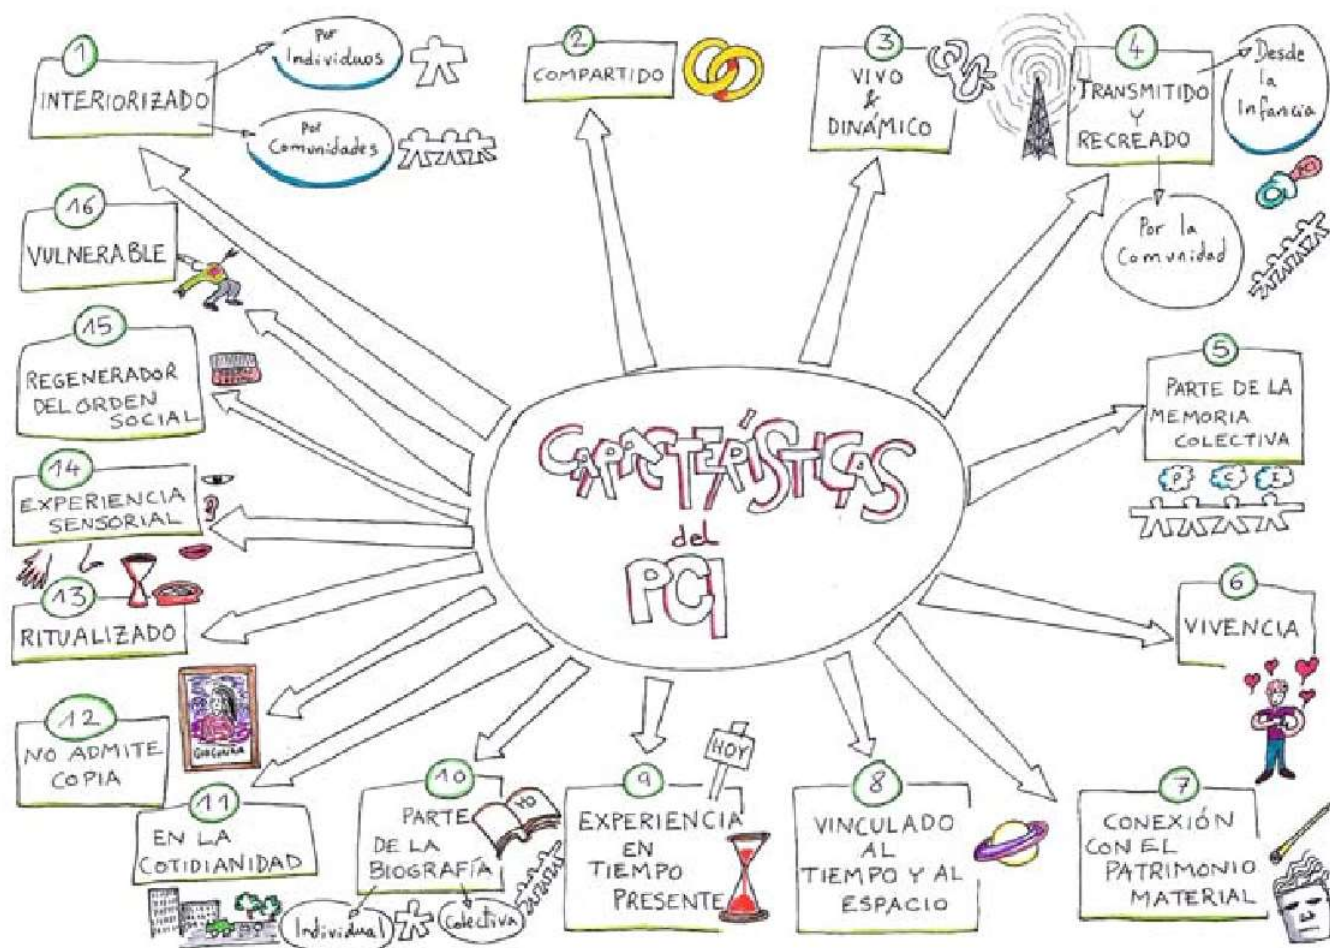 CARACTERÍSTICAS
del
PCI
1
INTERIORIZADO
Por
Individuos
Por
Comunidades
2
COMPARTIDO
3
VIVO
&
DINÁMICO
4
TRANSMITIDO
Y
RECREADO
Desde
la
Infancia
PCI
Por la
Comunidad
5
PARTE DE LA
MEMORIA
COLECTIVA
P C I
6
VIVENCIA
7
CONEXIÓN
CON EL
PATRIMONIO
MATERIAL
8
VINCULADO
AL
TIEMPO Y AL
ESPACIO
9
HOY
EXPERIENCIA
EN
TIEMPO
PRESENTE
10
PARTE
DE LA
BIOGRAFÍA
YO
Individual
Colectiva
11
EN LA
COTIDIANIDAD
12
NO ADMITE
COPIA
13
RITUALIZADO
14
EXPERIENCIA
SENSORIAL
15
REGENERADOR
DEL ORDEN
SOCIAL
16
VULNERABLE